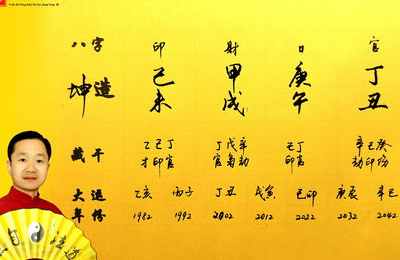 八字 印 財 日 官
坤造 己未 甲戌 庚午 丁丑
藏干 乙己丁 丁戊辛 己丁 辛己癸
才印官 官 劫 印官 劫印傷
大運 乙亥 丙子 丁丑 戊寅 己卯 庚辰 辛巳
年份 1982 1992 2002 2012 2022 2032 2042